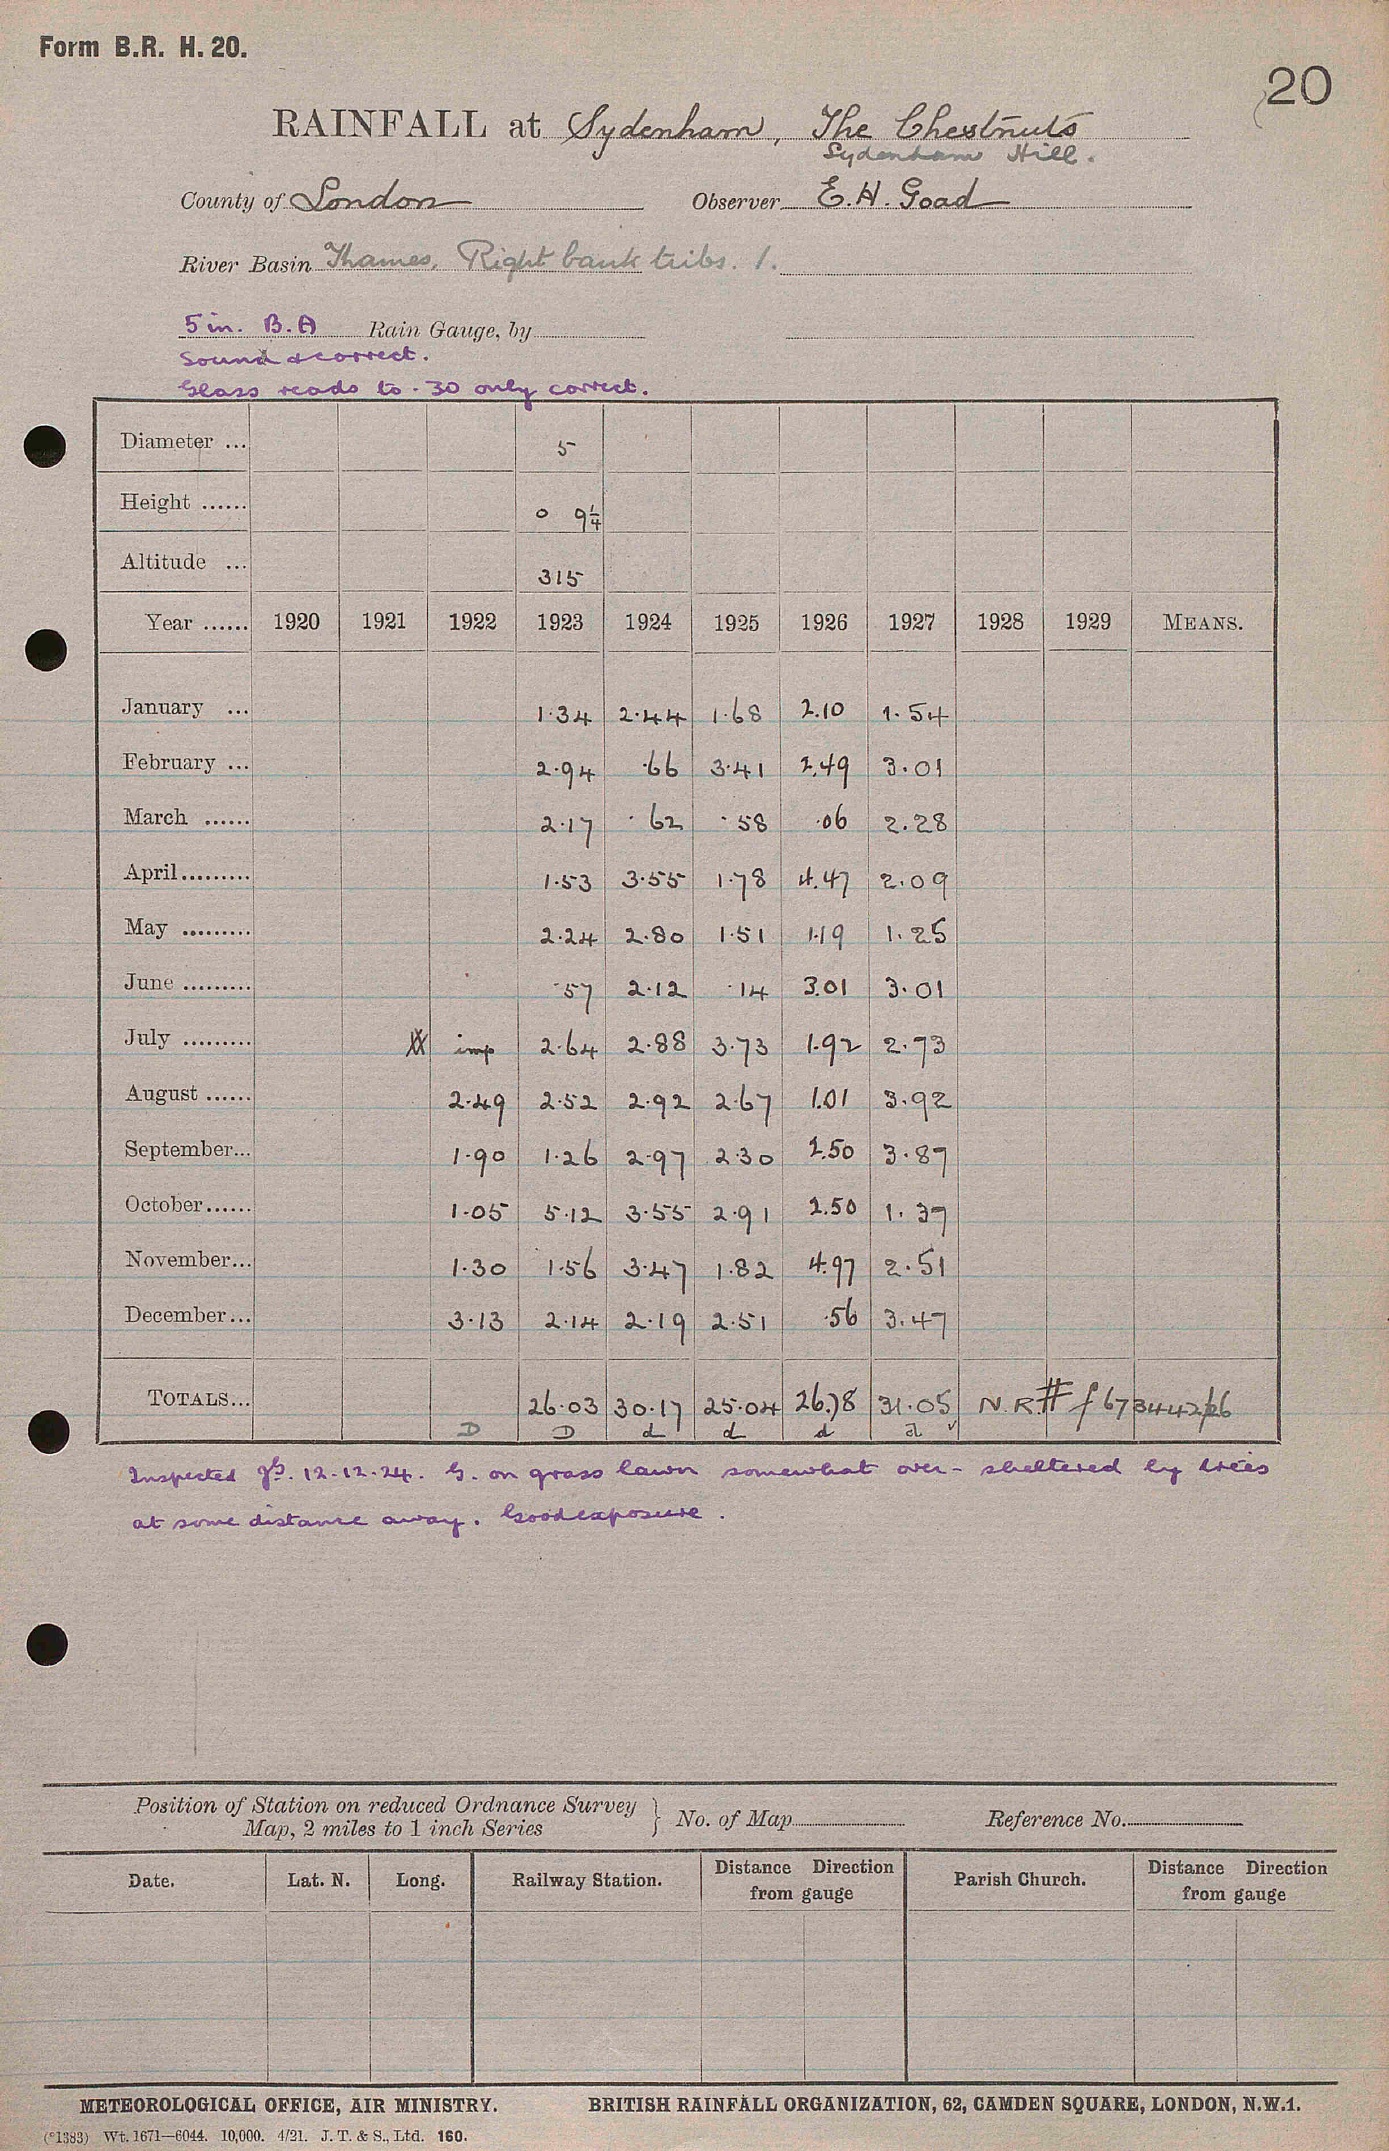 Form B.R. H. 20.
20
RAINFALL at Sydenham, The Chestnuts
Sydenham Hill.
County of London Observer E. H. Goad
River Basin Thames, Right bank tribs. 1.
5 in. B.A Rain Gauge, by
Sound & correct.
Glass reads to .30 only correct.
Diameter ... 5
Height ...... 0 9¼
Altitude ... 315
Year ...... 1920 1921 1922 1923 1924 1925 1926 1927 1928 1929 MEANS.
January ... 1.34 2.44 1.68 2.10 1.54
February ... 2.94 .66 3.41 2.49 3.01
March ...... 2.17 .62 .58 .06 2.28
April......... 1.53 3.55 1.78 4.47 2.09
May ......... 2.24 2.80 1.51 1.19 1.25
June ......... .57 2.12 .14 3.01 3.01
July ......... imp 2.64 2.88 3.73 1.92 2.73
August ...... 2.49 2.52 2.92 2.67 1.01 3.92
September... 1.90 1.26 2.97 2.30 2.50 3.87
October...... 1.05 5.12 3.55 2.91 2.50 1.37
November... 1.30 1.56 3.47 1.82 4.97 2.51
December... 3.13 2.14 2.19 2.51 .56 3.47
TOTALS... 26.03 30.17 25.04 26.78 31.05 N.R.#
D D d d d d
Inspected 12.12.24. G. on grass lawn somewhat over-sheltered by trees
at some distance away. Good exposure.
Position of Station on reduced Ordnance Survey
Map, 2 miles to 1 inch Series } No. of Map Reference No.
Date. Lat. N. Long. Railway Station. Distance Direction from gauge Parish Church. Distance Direction from gauge
METEOROLOGICAL OFFICE, AIR MINISTRY. BRITISH RAINFALL ORGANIZATION, 62, CAMDEN SQUARE, LONDON, N.W.1.
(*1383) Wt. 1671—6044. 10,000. 4/21. J. T. & S., Ltd. 160.